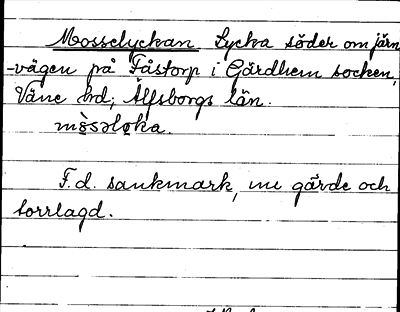 Mosselyckan Lycka söder om järn
-vägen på Fåstorp i Gärdhem socken,
Väne hrd; Älfsborgs län.
mòsəløka.
F.d. sankmark, nu gärde och
torrlagd.